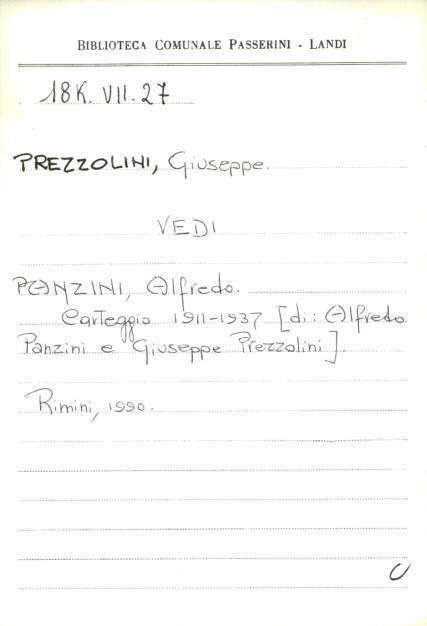 BIBLIOTECA COMUNALE PASSERINI - LANDI
18K. VII. 27
PREZZOLINI, Giuseppe.
VEDI
PANZINI, Alfredo.
Carteggio 1911-1937 [di: Alfredo
Panzini e Giuseppe Prezzolini].
Rimini, 1990.